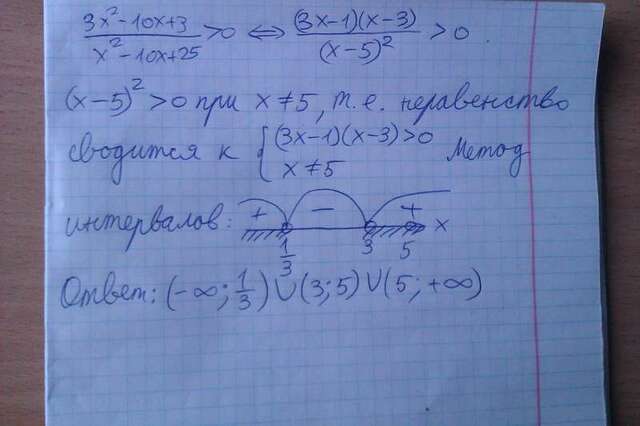 (3x²-10x+3)/(x²-10x+25) >0 ⇔ ((3x-1)(x-3))/((x-5)²) >0.
(x-5)²>0 при x≠5, т.е. неравенство
сводится к { (3x-1)(x-3)>0
x≠5 Метод
интервалов: + − + x
1/3 3 5
Ответ: (-∞; 1/3)∪(3;5)∪(5;+∞)